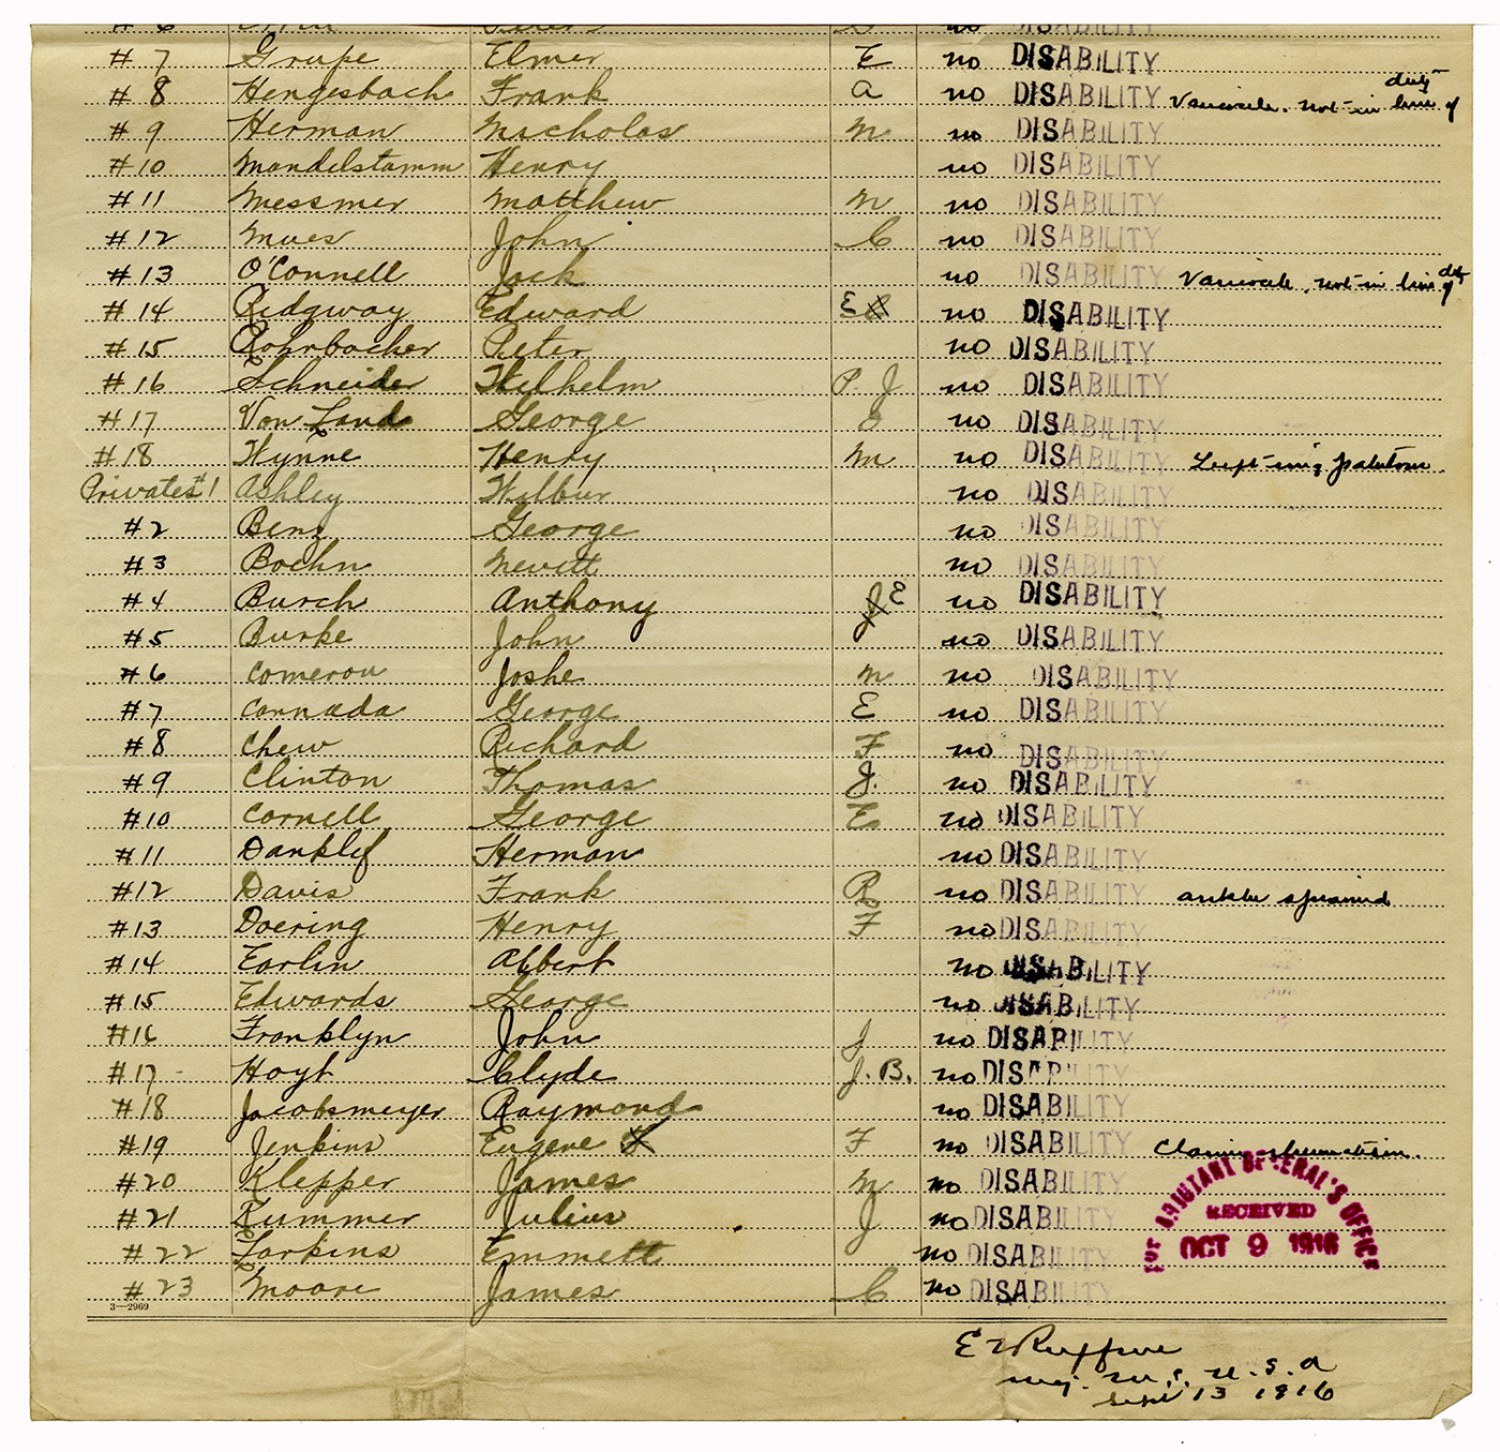 # 7 Grupe Elmer E no DISABILITY
# 8 Hengesbach Frank A no DISABILITY Varicocele. not in line of duty
# 9 Herman Nicholas M no DISABILITY
#10 Mandelstamm Henry no DISABILITY
#11 Messmer Matthew M no DISABILITY
#12 Mues John C no DISABILITY
#13 O'Connell Jack no DISABILITY Varicocele. not in line of duty
#14 Ridgway Edward E no DISABILITY
#15 Rohrbacher Peter no DISABILITY
#16 Schneider Wilhelm P. J no DISABILITY
#17 Von Land George O no DISABILITY
#18 Wynne Henry M no DISABILITY
Privates #1 Ashley Wilbur no DISABILITY
#2 Benz George no DISABILITY
#3 Boehn Nevitt no DISABILITY
#4 Burch Anthony E no DISABILITY
#5 Burke John no DISABILITY
#6 Comeron Joshe M no DISABILITY
#7 Cannada George E no DISABILITY
#8 Chew Richard F no DISABILITY
#9 Clinton Thomas J. no DISABILITY
#10 Cornell George E no DISABILITY
#11 Danklef Herman no DISABILITY
#12 Davis Frank R no DISABILITY ankle sprained
#13 Doering Henry F no DISABILITY
#14 Earlin Albert no DISABILITY
#15 Edwards George no DISABILITY
#16 Franklyn John J no DISABILITY
#17 Hoyt Clyde J. B. no DISABILITY
#18 Jacobsmeyer Raymond no DISABILITY
#19 Jenkins Eugene F no DISABILITY Claims rheumatism.
#20 Klepper James M no DISABILITY
#21 Kummer Julius J no DISABILITY
#22 Larkins Emmett no DISABILITY
#23 Moore James C no DISABILITY
RECEIVED
OCT 9 1916
3—2969
E L Ruffner
Maj. M. C. U. S. A
Sept 13 1916